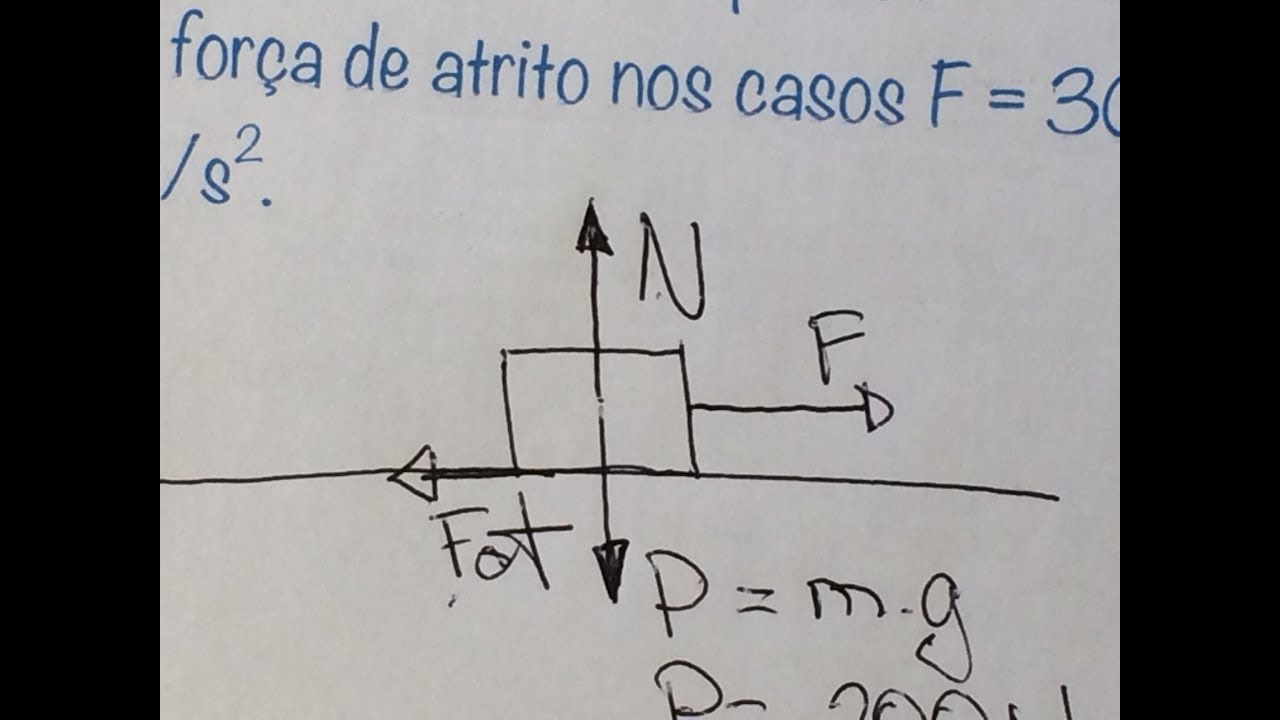 força de atrito nos casos F = 30
/s².
N
F
Fat
P = m.g
P= 200N